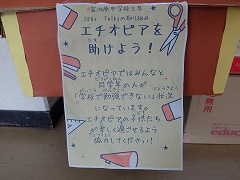 中学校三年
SDGs Talksの取り組み
エチオピアを
助けよう！
エチオピアではみんなと
同学年の人が
「学校で勉強できない」状況
になっています。
エチオピアの子供たち
が楽しく過ごせるよう
協力してください！